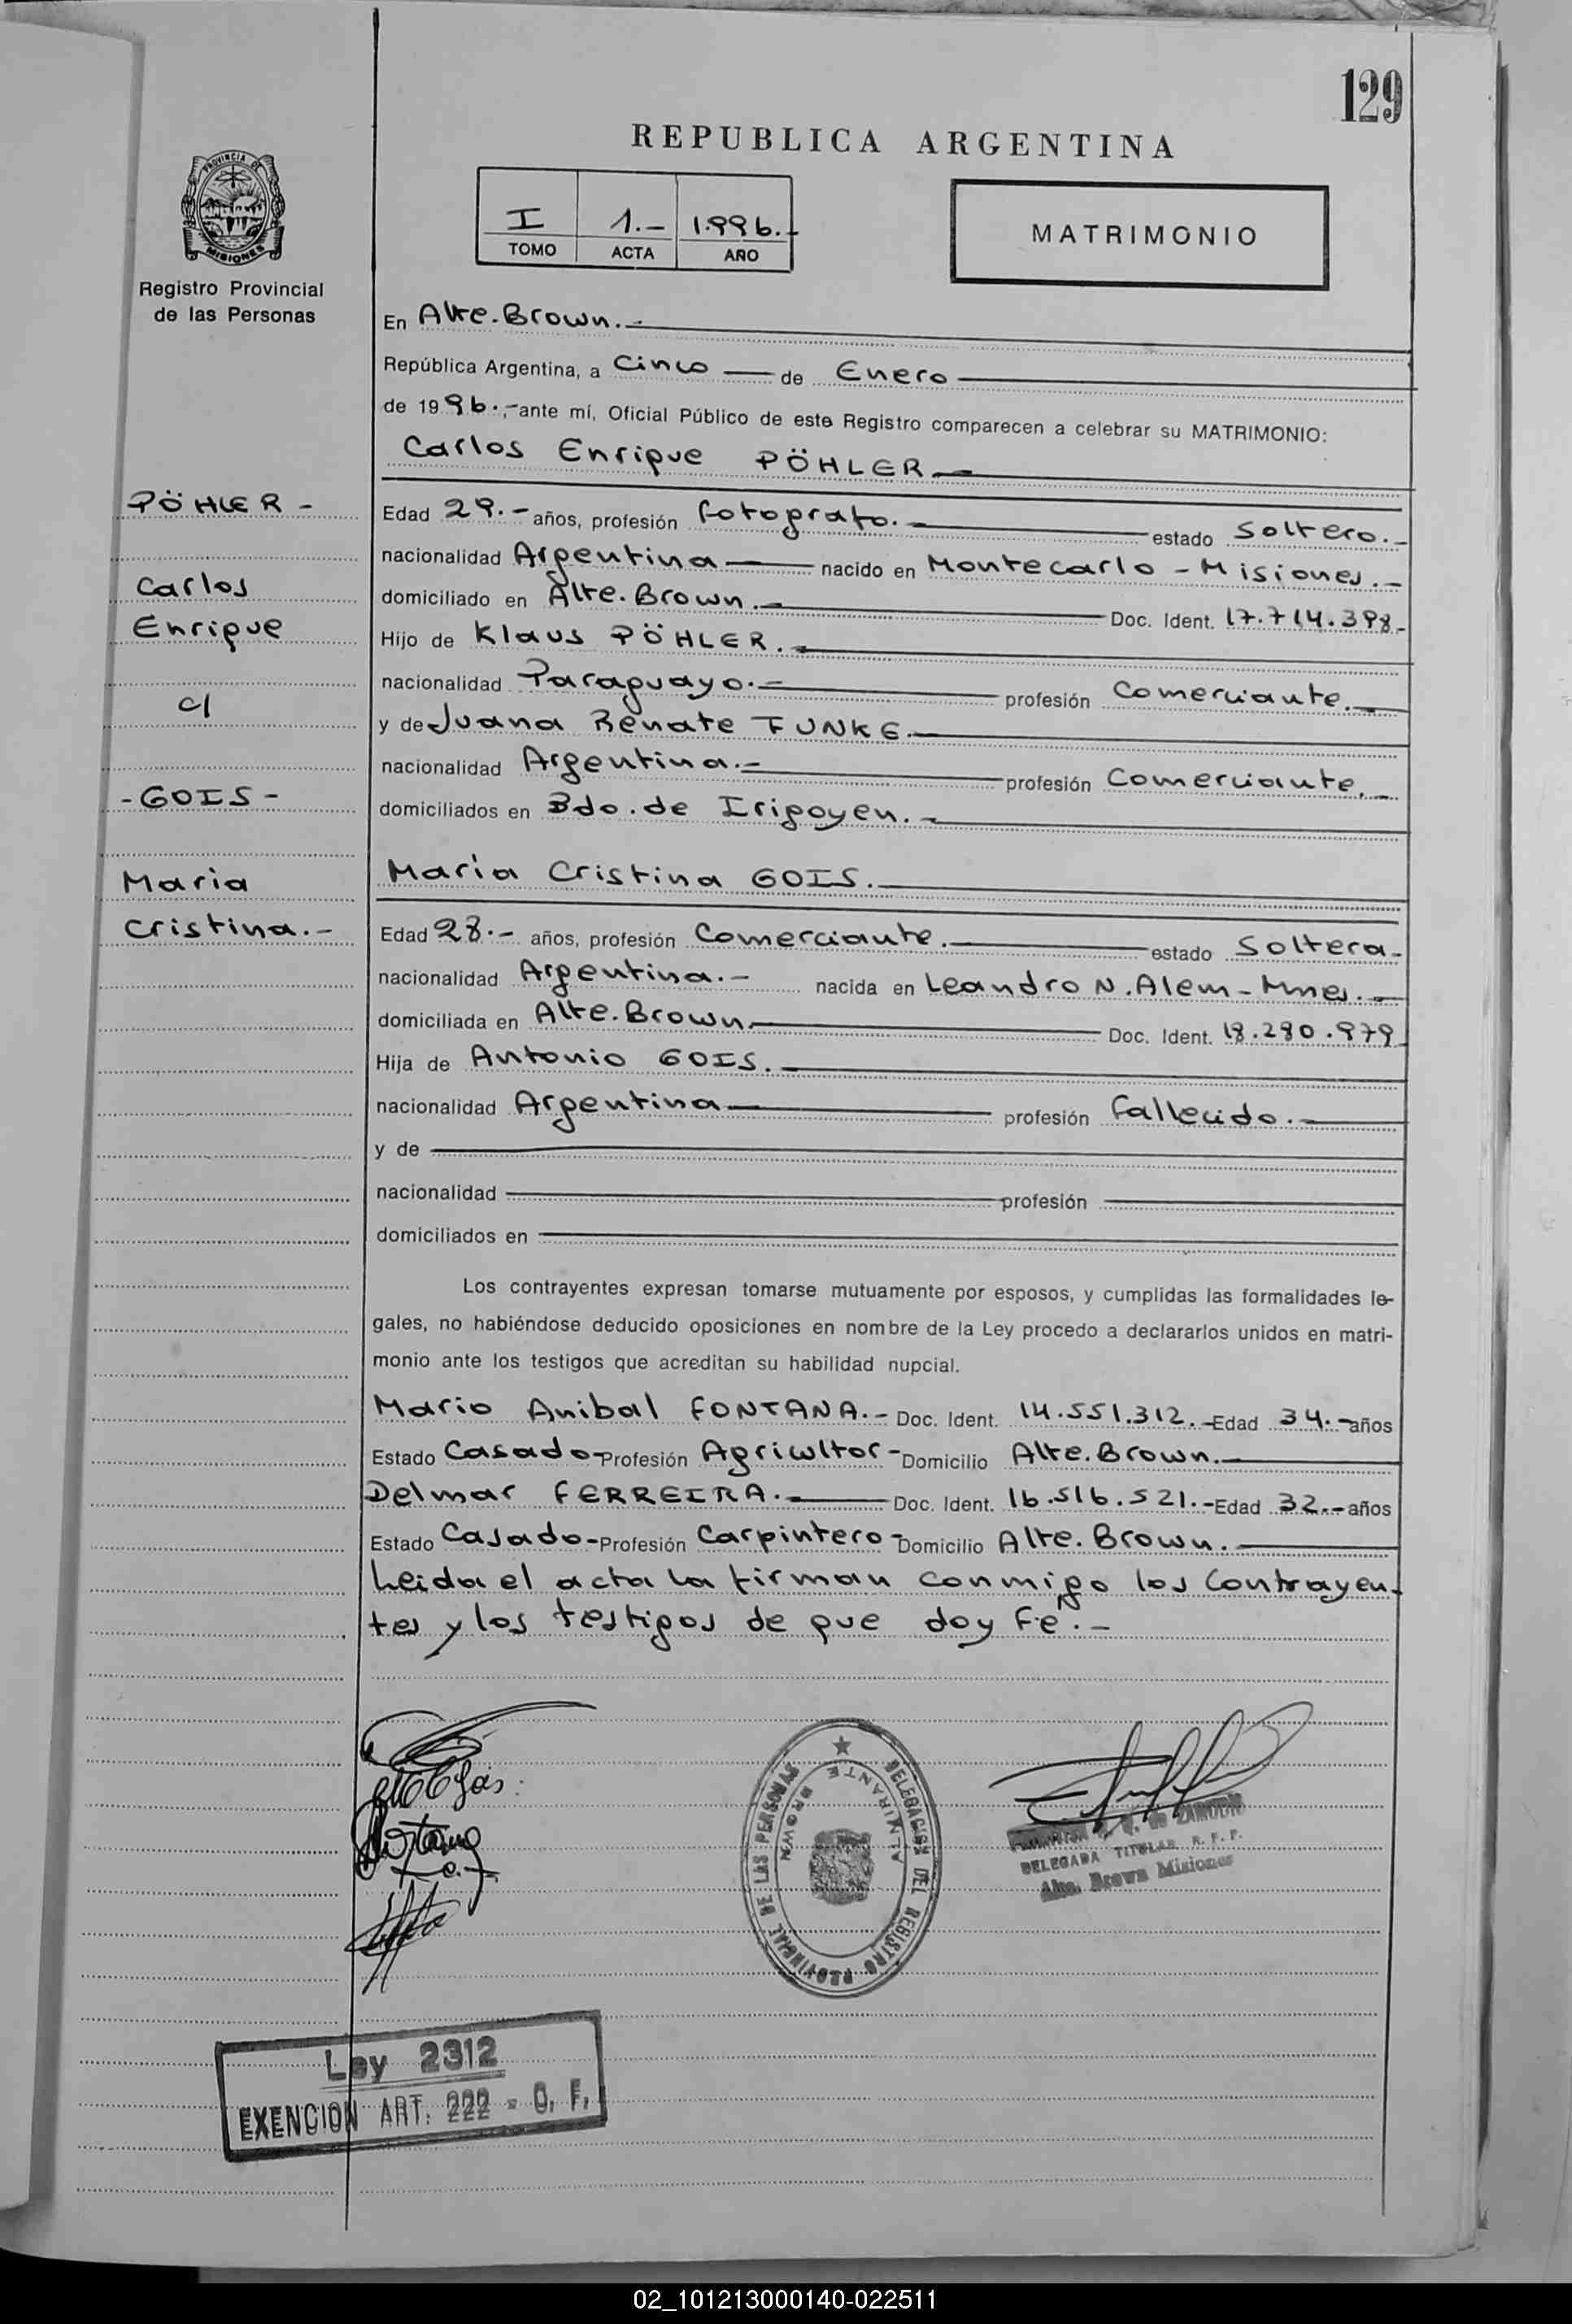 129
REPUBLICA ARGENTINA
PROVINCIA DE
MISIONES
Registro Provincial
de las Personas
I 1.- 1.996.-
TOMO ACTA AÑO
MATRIMONIO
En Alte. Brown.-
República Argentina, a Cinco de Enero
de 1996.,- ante mí, Oficial Público de este Registro comparecen a celebrar su MATRIMONIO:
Carlos Enrique PÖHLER
PÖHLER -
Carlos
Enrique
c/
- GOIS -
Maria
Cristina.-
Edad 29.- años, profesión fotografo.- estado Soltero.-
nacionalidad Argentina nacido en Montecarlo - Misiones.-
domiciliado en Alte. Brown.- Doc. Ident. 17.714.398-
Hijo de Klaus PÖHLER.-
nacionalidad Paraguayo.- profesión Comerciante.-
y de Juana Renate FUNKE.-
nacionalidad Argentina.- profesión Comerciante.-
domiciliados en Bdo. de Irigoyen.-
Maria Cristina GOIS.-
Edad 28.- años, profesión Comerciante. estado Soltera-
nacionalidad Argentina.- nacida en Leandro N. Alem - Mnes.-
domiciliada en Alte. Brown. Doc. Ident. 18.280.979
Hija de Antonio GOIS.-
nacionalidad Argentina profesión fallecido.-
y de
nacionalidad profesión
domiciliados en
Los contrayentes expresan tomarse mutuamente por esposos, y cumplidas las formalidades le-
gales, no habiéndose deducido oposiciones en nombre de la Ley procedo a declararlos unidos en matri-
monio ante los testigos que acreditan su habilidad nupcial.
Mario Anibal FONTANA.- Doc. Ident. 14.551.312.- Edad 34.- años
Estado Casado- Profesión Agricultor- Domicilio Alte. Brown.-
Delmar FERREIRA.- Doc. Ident. 16.516.521.- Edad 32.- años
Estado Casado- Profesión Carpintero- Domicilio Alte. Brown.-
Leida el acta la firman conmigo los Contrayen-
tes y los testigos de que doy Fe.-
DELEGACION DEL REGISTRO PROVINCIAL DE LAS PERSONAS
ALMIRANTE BROWN
DELEGADA TITULAR R. P. P.
Alte. Brown Misiones
Ley 2312
EXENCION ART. 222 - C. F.
02_101213000140-022511